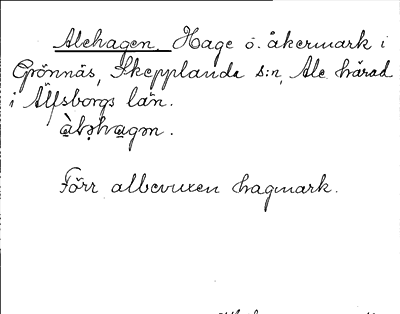 Alehagen. Hage o. åkermark i
Grönnäs, Skepplanda s:n, Ale härad
i Älfsborgs län.
Förr albevuxen hagmark.